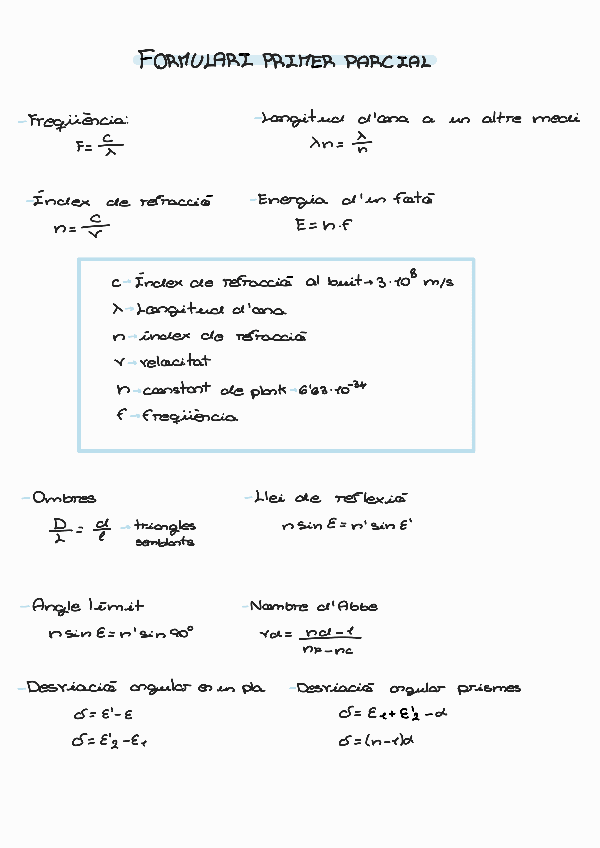 FORMULARI PRIMER PARCIAL
-Freqüència:
F = c/λ
-Longitud d'ona a un altre medi
λn = λ/n
-Índex de refracció
n = c/v
-Energia d'un fotó
E = h·f
c → Índex de refracció al buit → 3·10⁸ m/s
λ → Longitud d'ona
n → índex de refracció
v → velocitat
h → constant de plank → 6'63·10⁻³⁴
f → freqüència
-Ombres
D/L = d/l → triangles
semblants
-Llei de reflexió
n sin ε = n' sin ε'
-Angle límit
n sin ε = n' sin 90°
-Nombre d'Abbe
vd = nd - 1 / nF - nc
-Desviació angular en un pla
σ = ε' - ε
σ = ε'2 - ε1
-Desviació angular prismes
σ = ε1 + ε'2 - α
σ = (n - 1)α